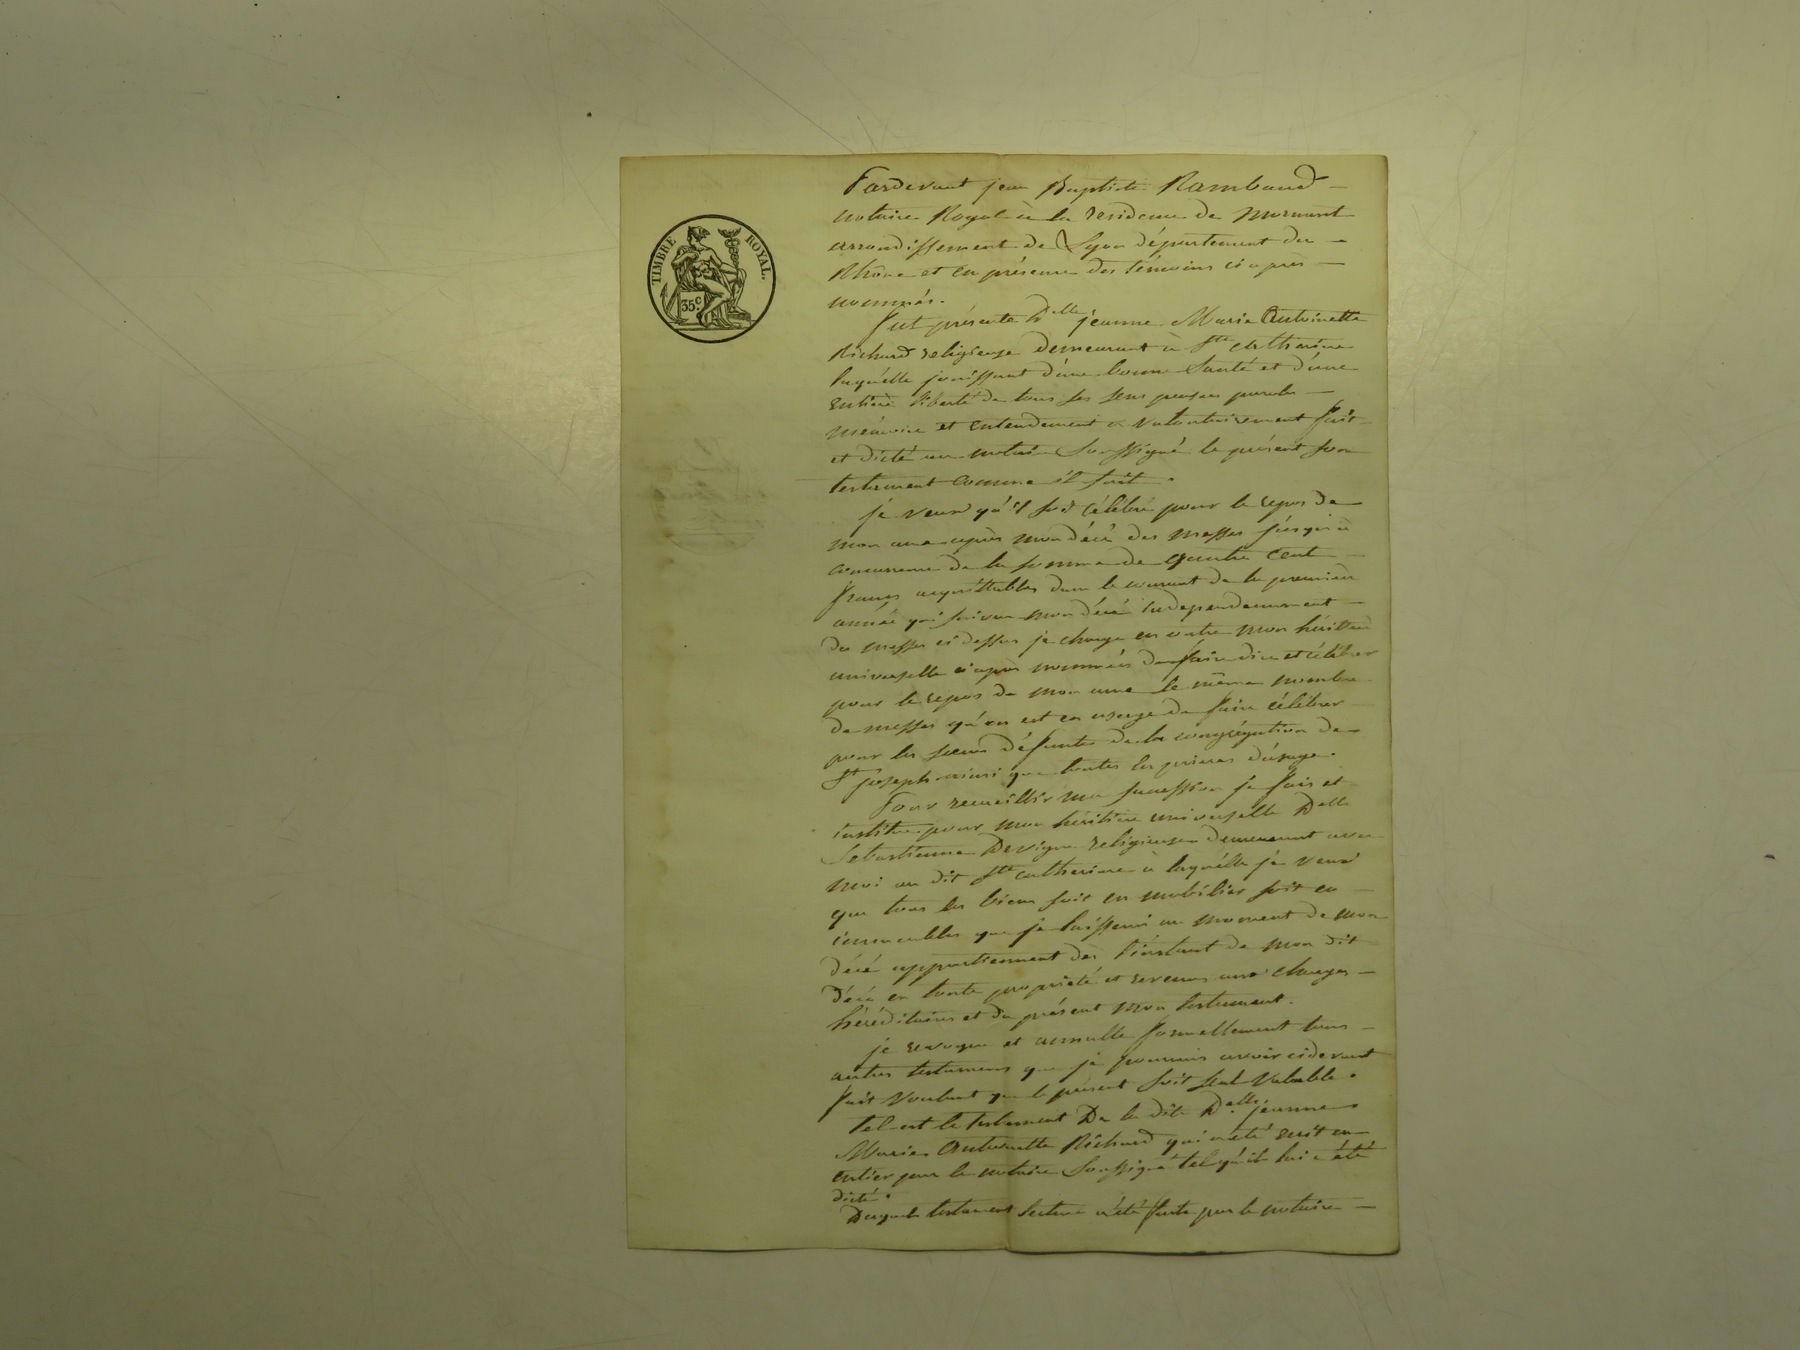 TIMBRE ROYAL.
35.c
Pardevant jean Baptiste Rambaud
notaire Royal à la residence de Mornant
arrondissement de Lyon département du
Rhône et en présence des témoins ci après
nommés.
fut présente Delle jeanne Marie Antoinette
Richard religieuse demeurant à Ste Catherine
laquélle jouissant d'une bonne Santé et d'une
entière liberté de tous ses sens pensée parole
mémoire et entendement a volontairement fait
et dicté au notaire Soussigné le présent son
testament comme il suit.
je veux qu'il soit célébré pour le repos de
mon ame après mon décé des messes jusqu'à
concurrence de la somme de quatre cent
francs acquittables dans le courant de la premiere
année qui suivra mon décé indépendamment
des messes ci dessus je charge en outre mon héritière
universelle ci après nommée de faire dire et célébrer
pour le repos de mon ame le même nombre
de messes qu'on est en usage de faire célébrer
pour les soeurs défuntes de la congrégation de
St joseph ainsi que toutes les prieres d'usage.
Pour recueillir ma succession je fais et
institue pour mon héritiere universelle Delle
Sebastienne Devigne religieuse demeurant avec
moi au dit Ste Catherine à laquélle je veux
que tous les biens soit en mobilier soit en
immeubles que je laisserai au moment de mon
décé appartiennent dès l'instant de mon dit
décé en toute propriété et revenus aux charges
héréditaires et du présent mon testament.
je revoque et annulle formellement tous
autres testamens que je pourrais avoir cidevant
fait voulant que le présent soit seul valable.
Tel est le testament De la dite Delle jeanne
Marie Antoinette Richard qui a été écrit en
entier par le notaire Soussigné tel qu'il lui a été
dicté.
Duquel testament lecture a été faite par le notaire